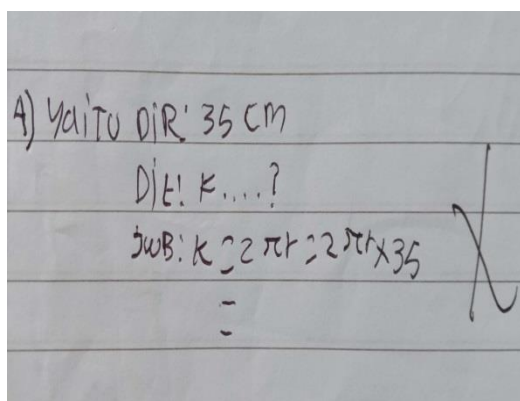 4) Yaitu DiR: 35 cm
Dit: K....?
JwB: K = 2πr = 2πr x 35
=